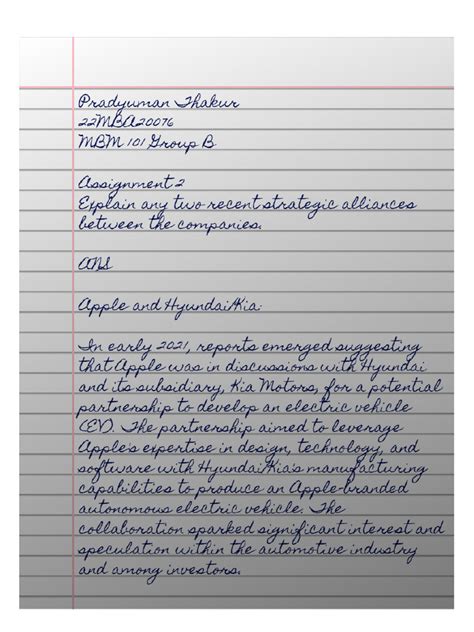 Pradyuman Thakur
22MBA20076
MBM 101 Group B
Assignment 2
Explain any two recent strategic alliances
between the companies.
ANS
Apple and Hyundai/Kia:
In early 2021, reports emerged suggesting
that Apple was in discussions with Hyundai
and its subsidiary, Kia Motors, for a potential
partnership to develop an electric vehicle
(EV). The partnership aimed to leverage
Apple's expertise in design, technology, and
software with Hyundai/Kia's manufacturing
capabilities to produce an Apple-branded
autonomous electric vehicle. The
collaboration sparked significant interest and
speculation within the automotive industry
and among investors.